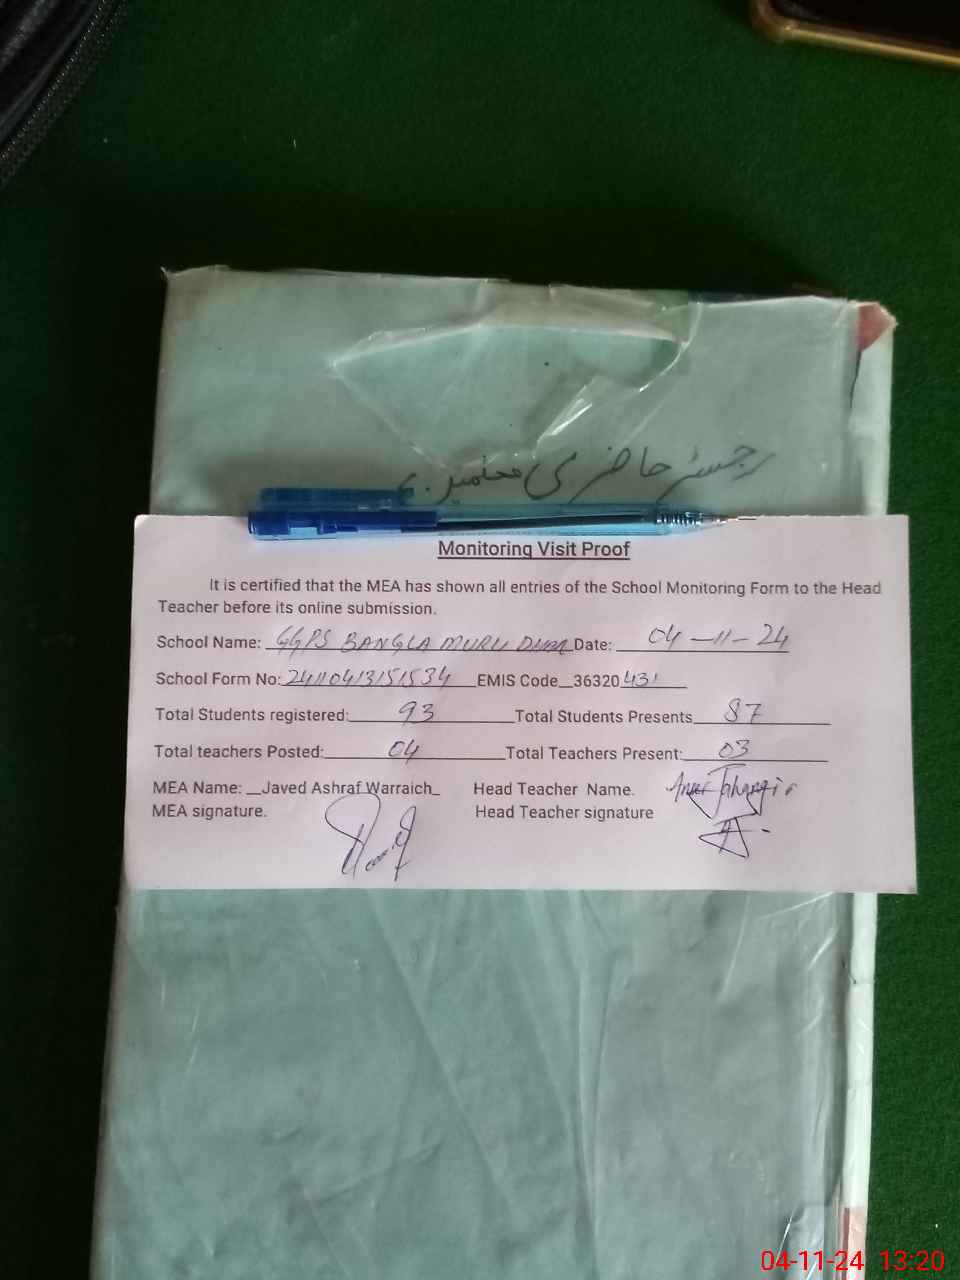 رجسٹر حاضری معلمین
Monitoring Visit Proof
It is certified that the MEA has shown all entries of the School Monitoring Form to the Head
Teacher before its online submission.
School Name: GGPS BANGLA MURLI Date: 04-11-24
School Form No: 24110413151534 EMIS Code 36320431
Total Students registered: 93 Total Students Presents 87
Total teachers Posted: 04 Total Teachers Present: 03
MEA Name: Javed Ashraf Warraich Head Teacher Name. Jahangir
MEA signature. Head Teacher signature
04-11-24 13:20